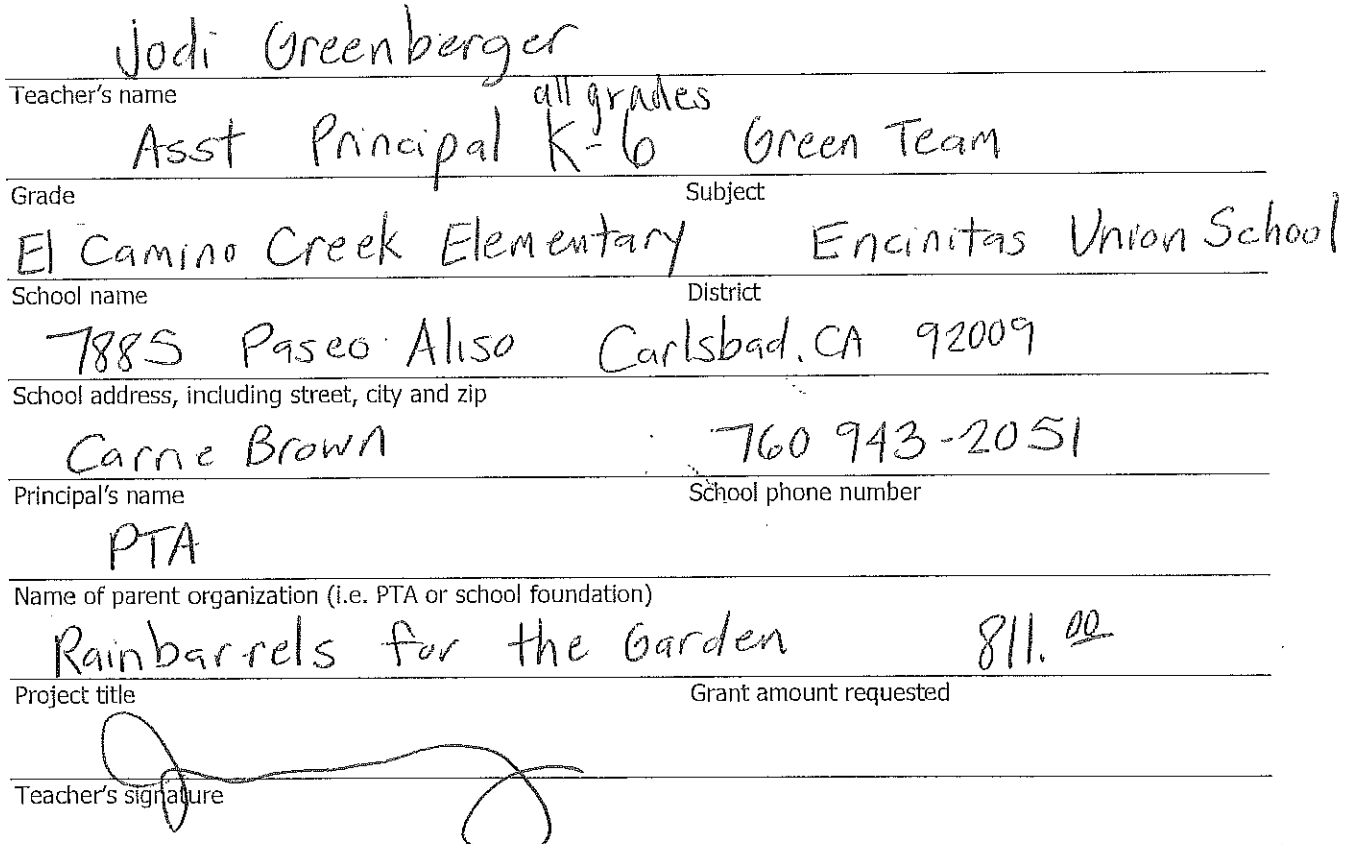 Jodi Greenberger
Teacher's name
all grades
Asst Principal K-6 Green Team
Grade Subject
El Camino Creek Elementary Encinitas Union School
School name District
7885 Paseo Aliso Carlsbad, CA 92009
School address, including street, city and zip
Carrie Brown 760 943-2051
Principal's name School phone number
PTA
Name of parent organization (i.e. PTA or school foundation)
Rainbarrels for the Garden 811.00
Project title Grant amount requested
Teacher's signature